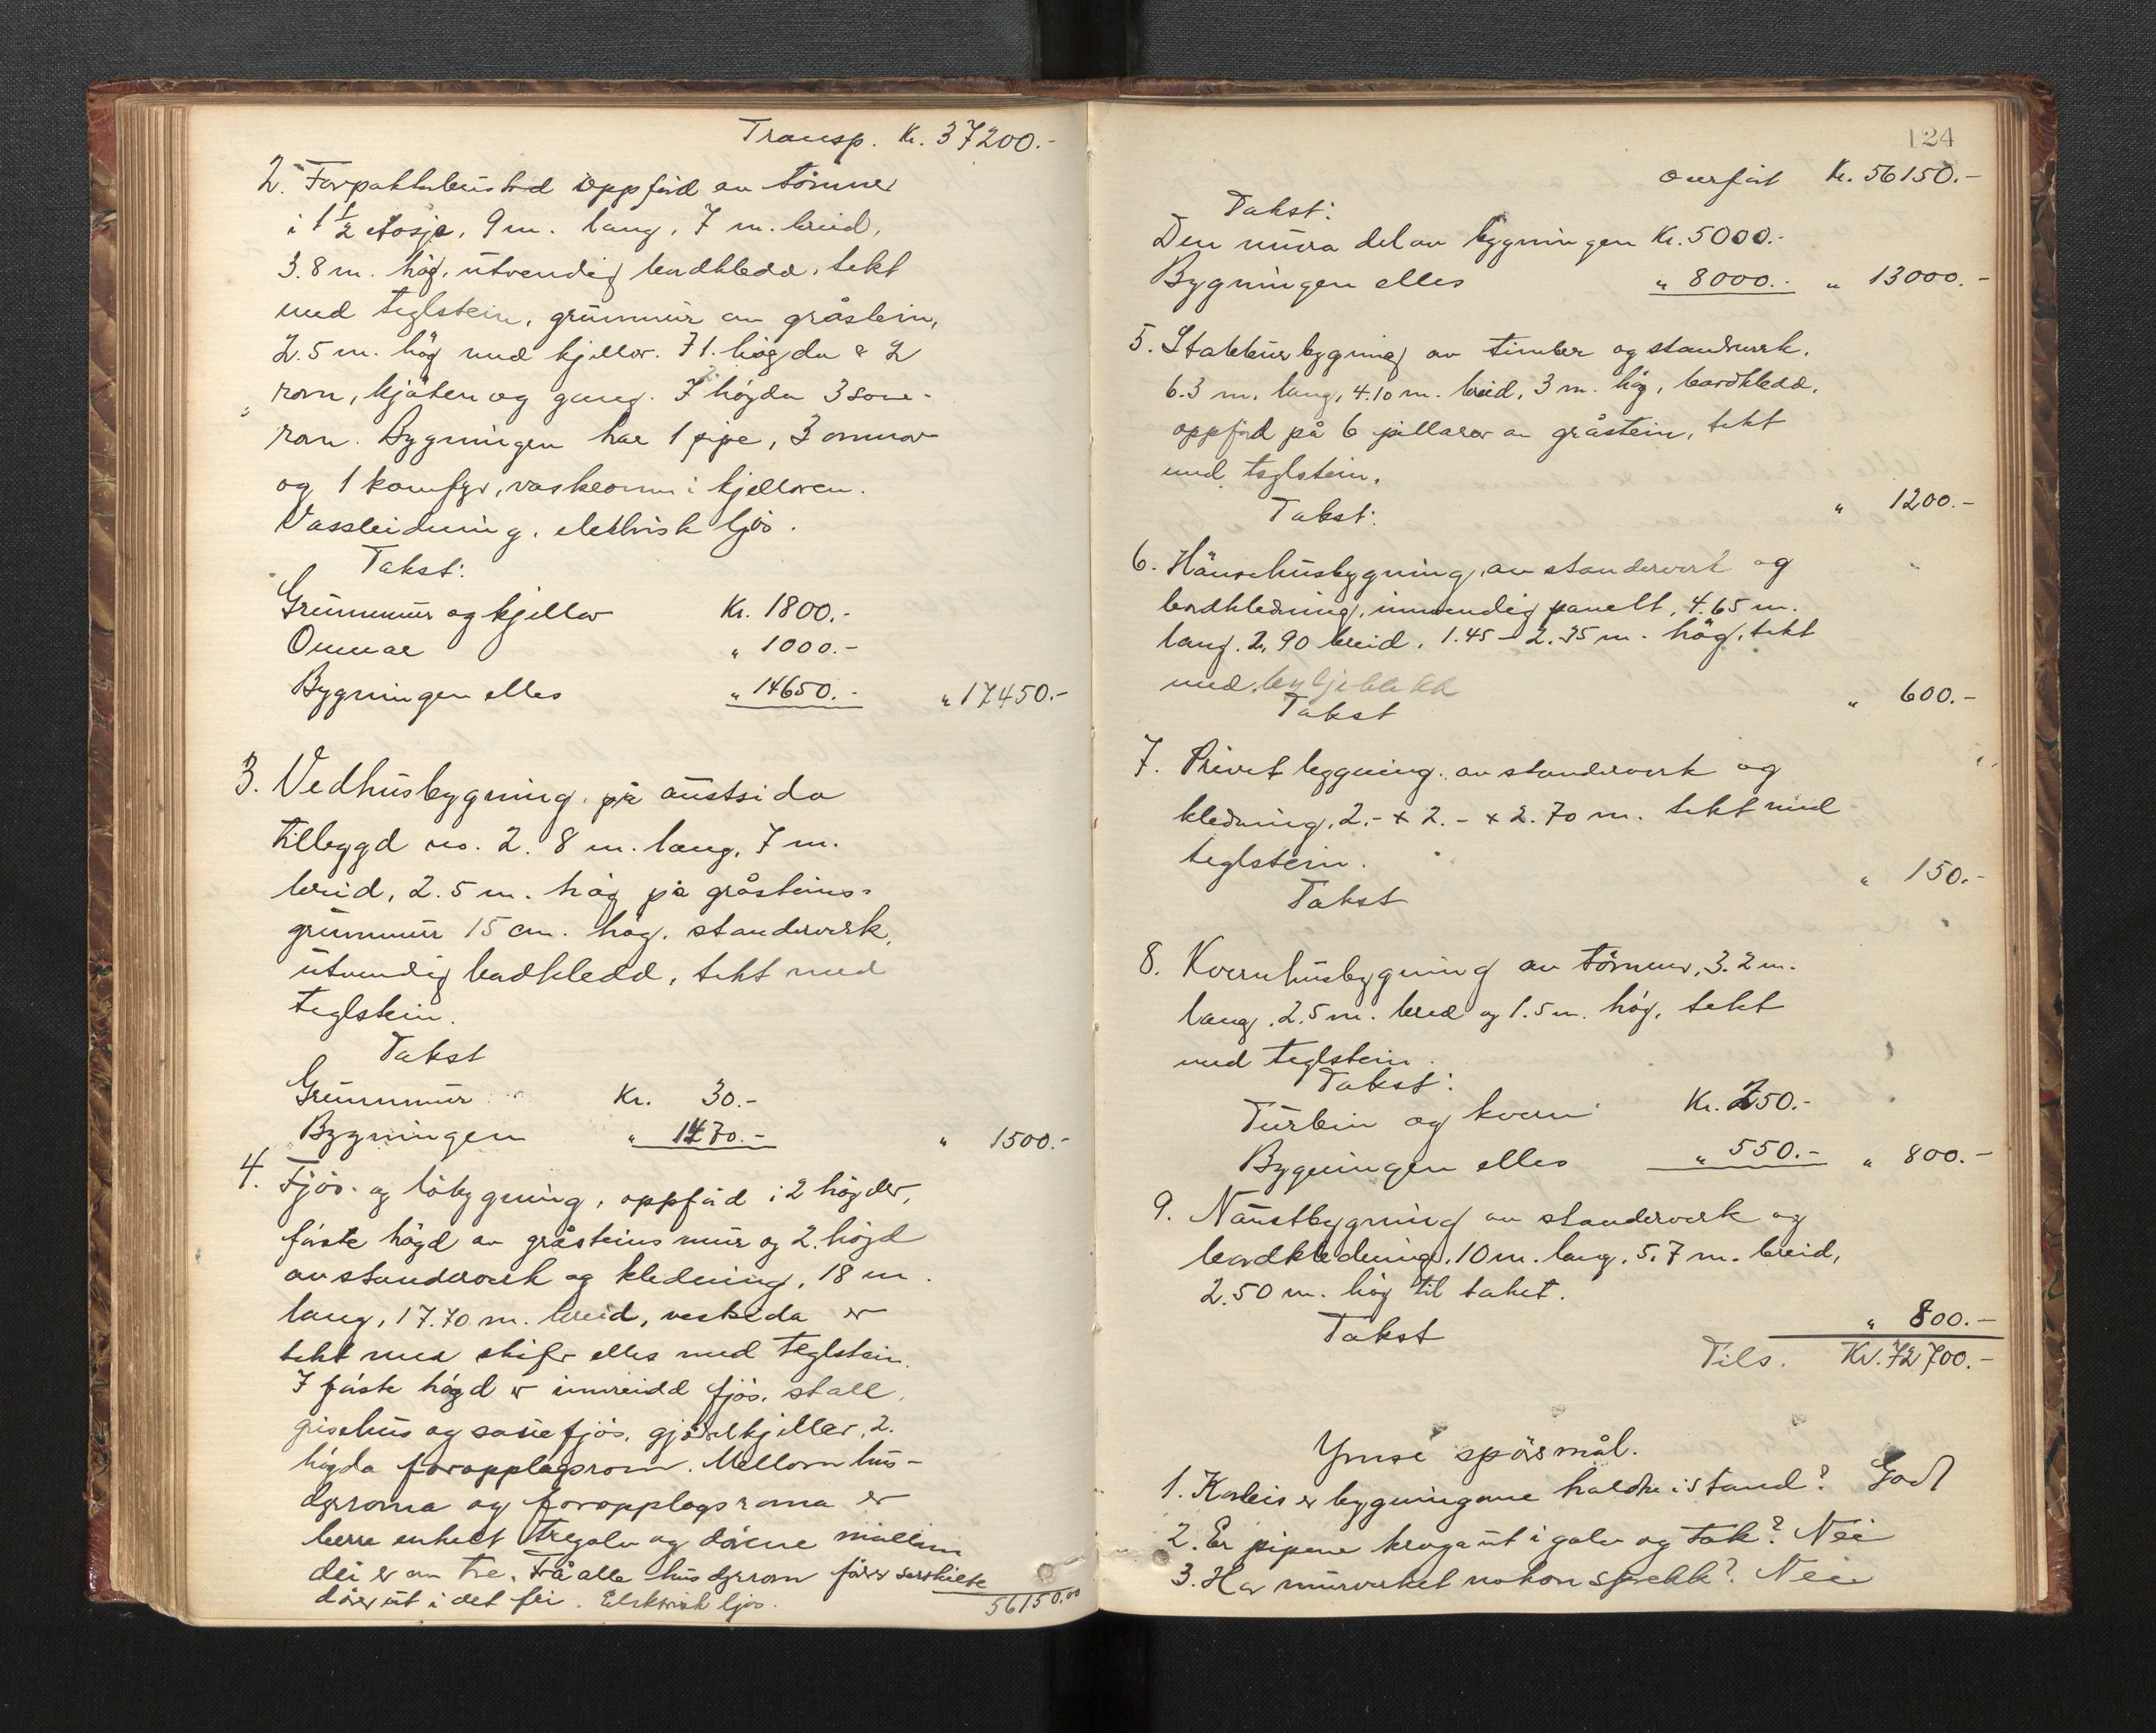 Transp. Kr. 37200.-
2. Forpaktarbustad oppförd av tömmer
i 1 1/2 etasje, 9 m. lang, 7 m. breid,
3.8 m. hög, utvendig bordkledd, tekt
med teglstein, grunnmur av gråstein,
2.5 m. hög med kjellar. I 1. högda er 2
rom, kjöken og gang. I 2. högda 3 sove-
rom. Bygningen har 1 pipe, 3 omnar
og 1 komfyr, vaskeomn i kjellaren.
Vassleidning, elektrisk ljos.
Takst:
Grunnmur og kjellar Kr. 1800.-
Omnar " 1000.-
Bygningen elles " 14650.- " 17450.-
3. Vedhusbygning, på austsida
tilbygd no. 2. 8 m. lang, 7 m.
breid, 2.5 m. hög på gråsteins-
grunnmur 15 cm. hög, standerverk,
utvendig bordkledd, tekt med
teglstein.
Takst
Grunnmur Kr. 30.-
Bygningen " 1470.- " 1500.-
4. Fjös- og löbygning, oppförd i 2 högder,
förste högd av gråsteinsmur og 2. högd
av standerverk og kledning, 18 m.
lang, 17.70 m. breid, vestsida er
tekt med skifer elles med teglstein.
I förste högd er innreidd fjös, stall,
grisehus og sauefjös, gjödselkjellar, 2.
högda foropplagsrom. Mellom hus-
dyrroma og foropplagsroma er
berre enkelt tregolv og dörene mellom
dei er av tre. Frå alle husdyrrom förer serskilte
dörer ut i det fri. Elektrisk ljos.
56150.00
124
Overfört Kr. 56150.-
Takst:
Den mura del av bygningen Kr. 5000.-
Bygningen elles " 8000.- " 13000.-
5. Stabbursbygning av timber og standverk,
6.3 m. lang, 4.10 m. breid, 3 m. hög, bordkledd,
oppförd på 6 pillarer av gråstein, tekt
med teglstein.
Takst: " 1200.-
6. Hönsehusbygning, av standerverk og
bordkledning, innvendig panelt, 4.65 m.
lang, 2,90 breid, 1.45 - 2.35 m. hög, tekt
med bylgjeblekk
Takst " 600.-
7. Privetbygning av standerverk og
kledning, 2.- x 2.- x 2.70 m. tekt med
teglstein.
Takst " 150.-
8. Kvernhusbygning av tömmer, 3.2 m.
lang, 2.5 m. breid og 1.5 m. hög, tekt
med teglstein.
Takst:
Turbin og kvern Kr. 250.-
Bygningen elles " 550.- " 800.-
9. Naustbygning av standerverk og
bordkledning, 10 m. lang, 5,7 m. breid,
2.50 m. hög til taket.
Takst " 800.-
Tils. Kr. 72700.-
Ymse spörsmål.
1. Korleis er bygningane haldne i stand? God
2. Er pipene kraga ut i golv og tak? Nei
3. Har murverket nokon sprekk? Nei